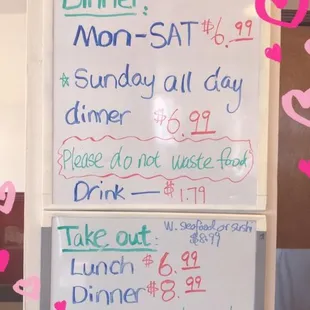 Dinner:
Mon-SAT $6.99
☆ Sunday all day
dinner $6.99
Please do not waste food
Drink — $1.79
Take out: W. seafood or sushi
$8.99
Lunch $6.99
Dinner $8.99